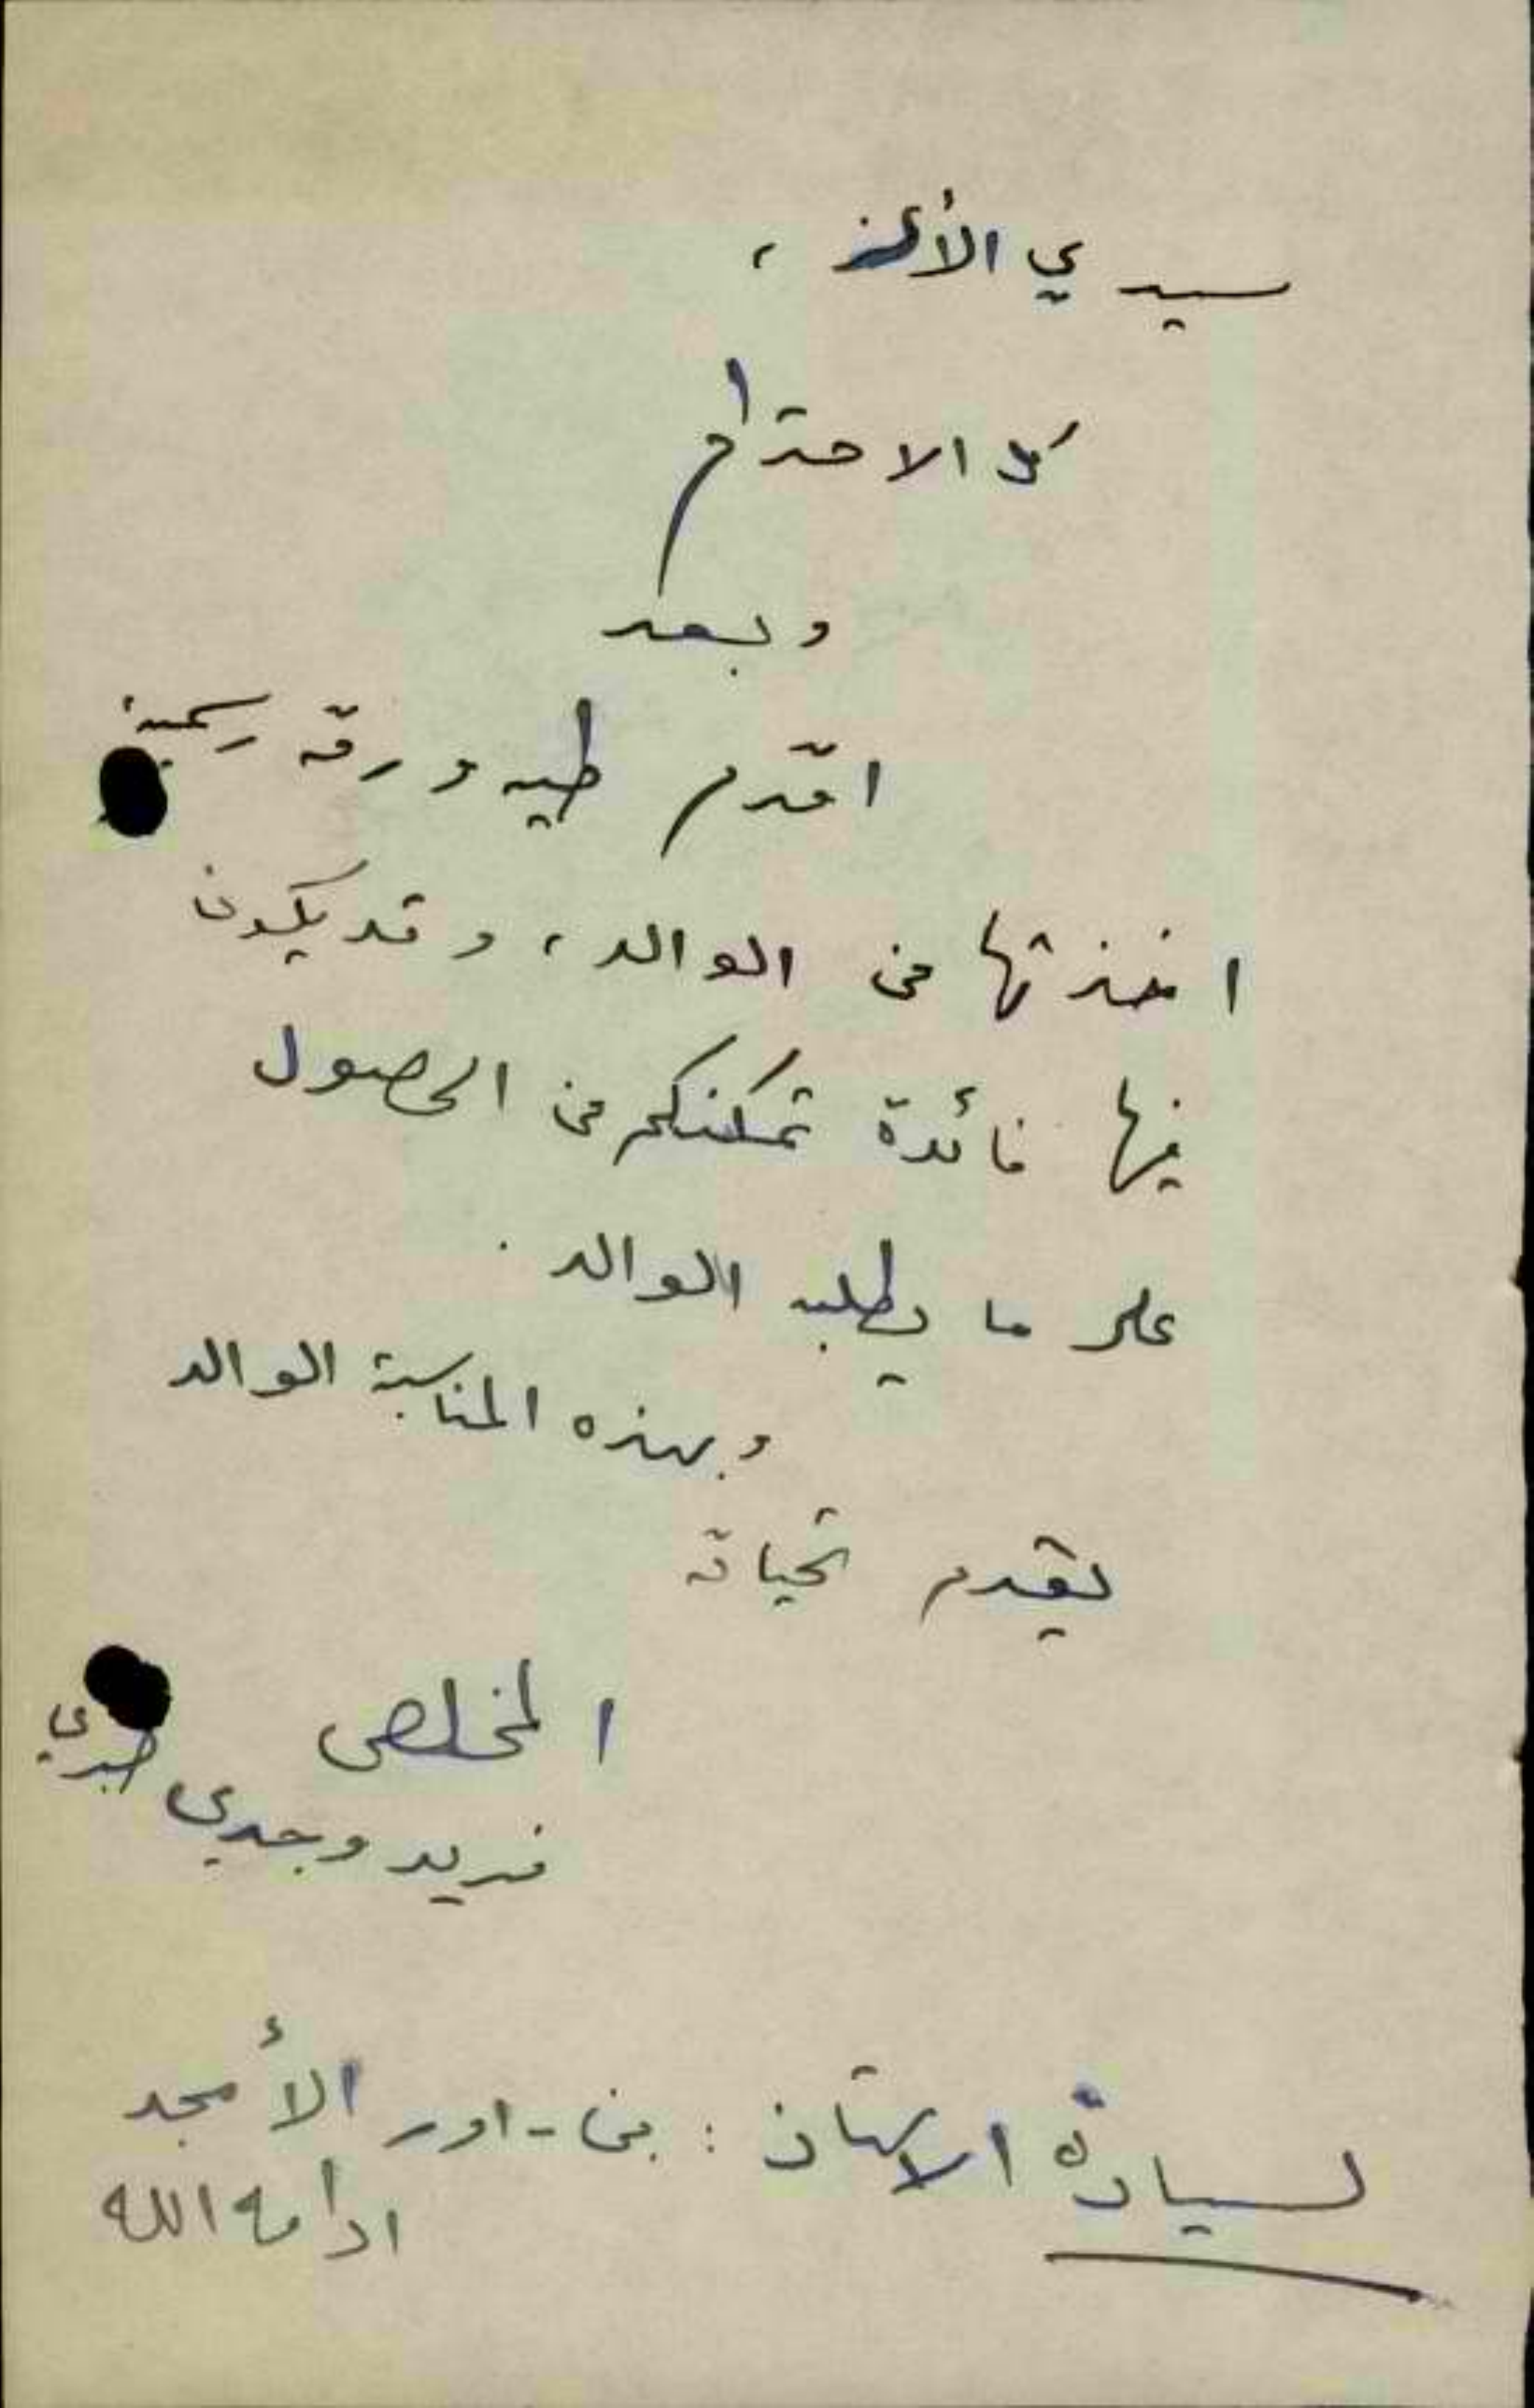 سيدي الأعز ،
كل الاحترام
وبعد
اقدّم طيه ورقة رسمية
اخذتها من الوالد ، وقد يكون
فيها فائدة تمكنكم من الحصول
على ما يطلبه الوالد .
وبهذه المناسبة الوالد
يقدم تحياته
المخلص
فريد وجدي طبري
لسيادة الاستاذ : بن - اور الأمجد
ادامه الله